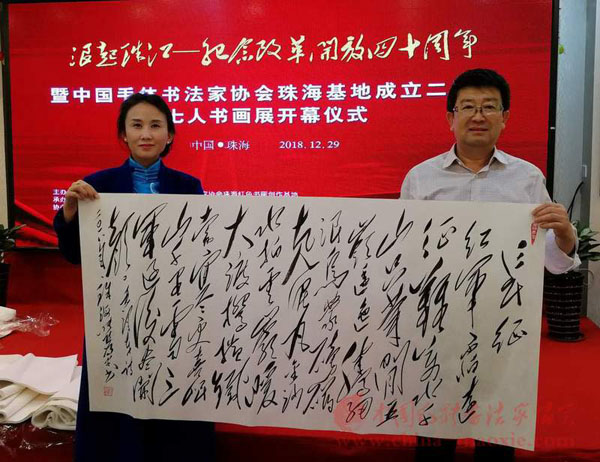 浪起珠江—纪念改革开放四十周年
暨中国毛体书法家协会珠海基地成立二
七人书画展开幕仪式
中国●珠海 2018.12.29
主办
承办
长征
红军不怕远
征难万水千
山只等闲五
岭逶迤腾细
浪乌蒙磅礴
走泥丸金沙
水拍云崖暖
大渡桥横铁
索寒更喜岷
山千里雪三
军过后尽开
颜